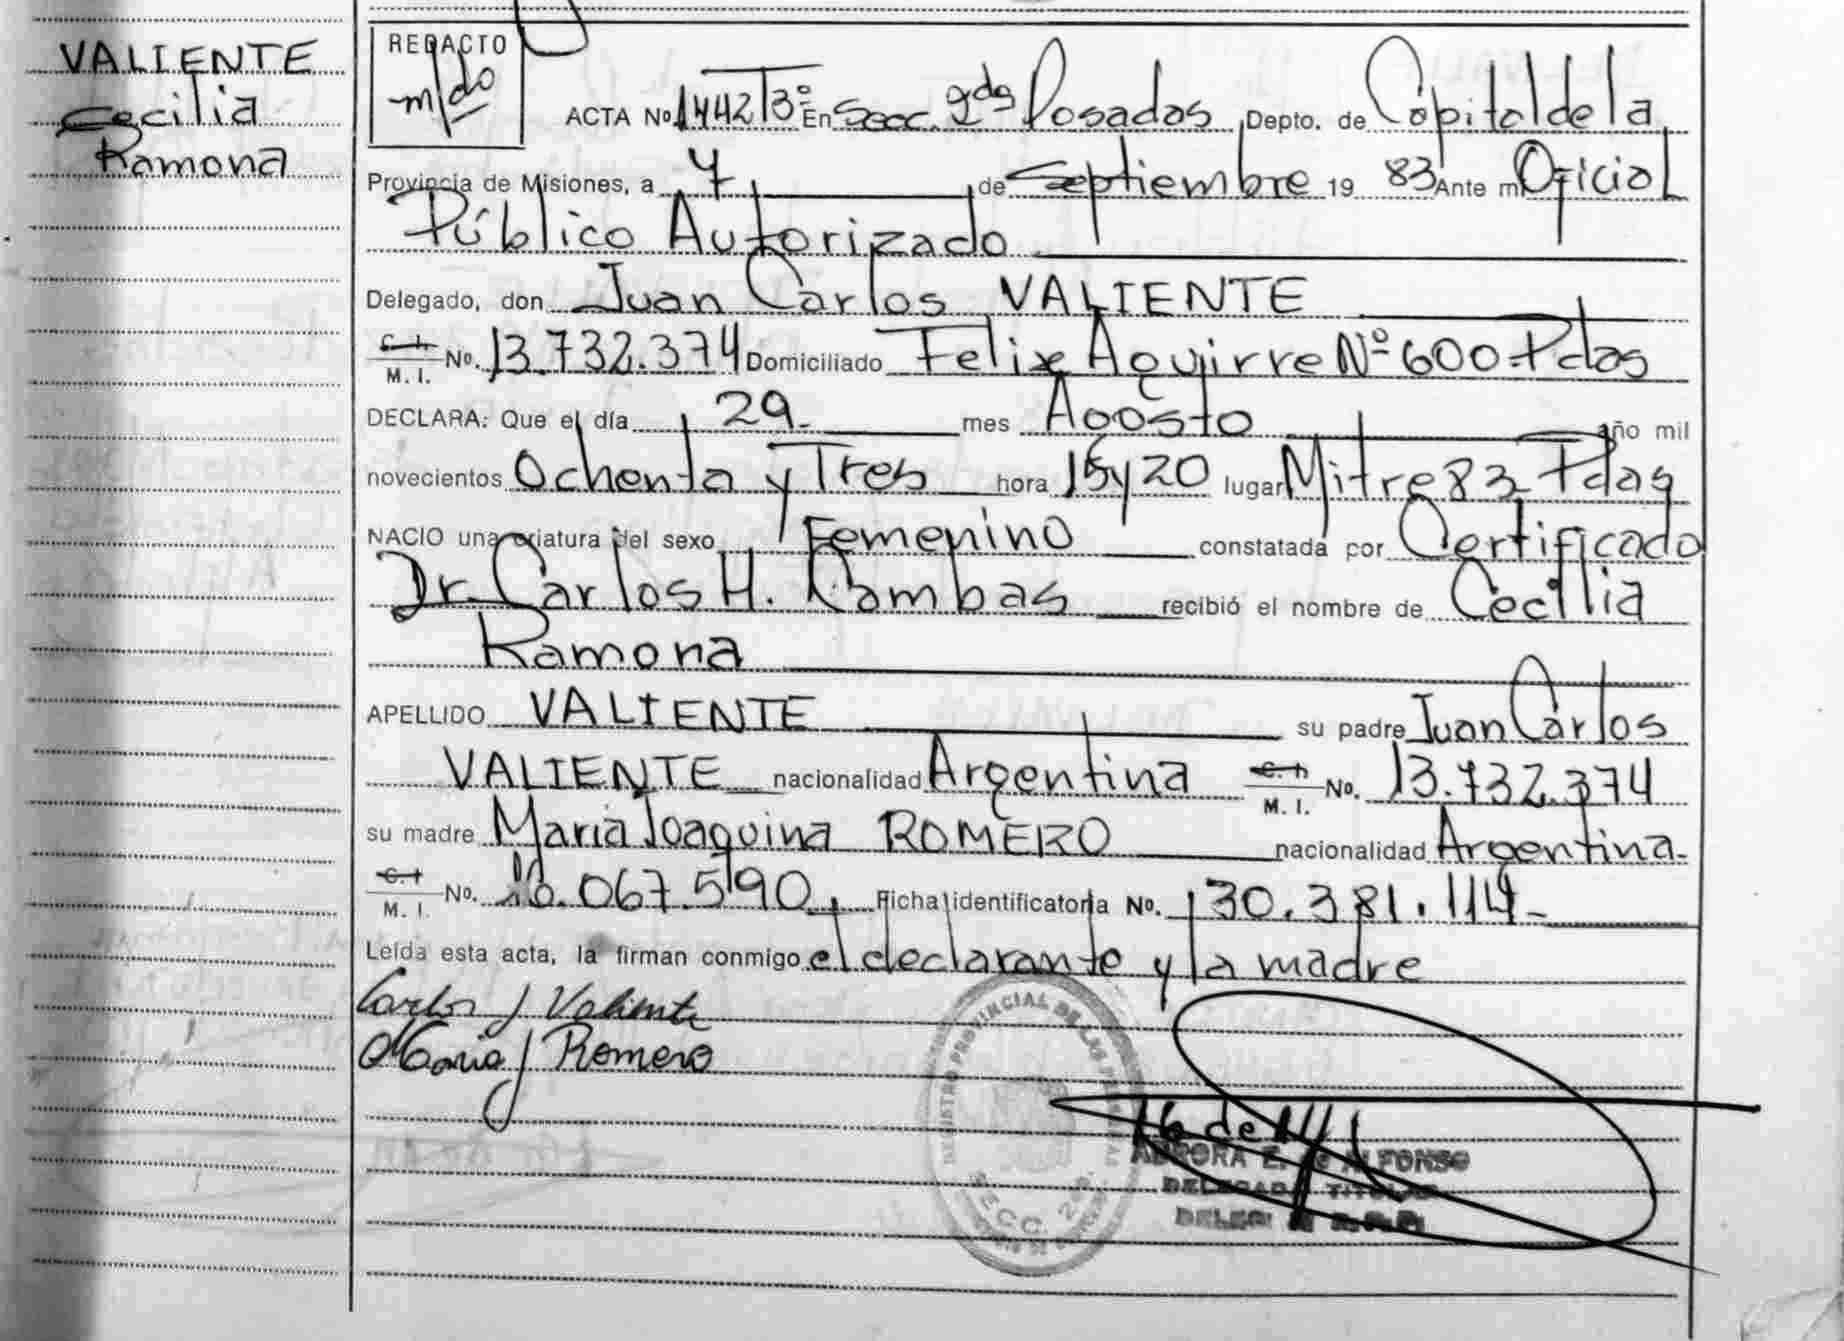 VALIENTE
Cecilia
Ramona
REDACTO
m/do
ACTA No. 1442 Tº3º En Secc. 2da Posadas, Depto. de Capital de la
Provincia de Misiones, a 7 de Septiembre 19 83 Ante mi Oficial
Público Autorizado
Delegado, don Juan Carlos VALIENTE
C. I. / M. I. No. 13.732.374 Domiciliado Felix Aguirre Nº 600 Pdas
DECLARA: Que el día 29 mes Agosto año mil
novecientos Ochenta y Tres hora 15 y 20 lugar Mitre 83 Pdas
NACIO una criatura del sexo Femenino constatada por Certificado
Dr. Carlos H. Cambas recibió el nombre de Cecilia
Ramona
APELLIDO VALIENTE su padre Juan Carlos
VALIENTE nacionalidad Argentina C. I. / M. I. No. 13.732.374
su madre Maria Joaquina ROMERO nacionalidad Argentina-
C. I. / M. I. No. 16.067.590, Ficha identificatoria No. 30.381.114-
Leída esta acta, la firman conmigo el declarante y la madre
Carlos J Valiente
Maria J Romero
REGISTRO PROVINCIAL DE LAS PERSONAS
SECC. 2da.
AURORA E. de ALFONSO
DELEGADA TITULAR